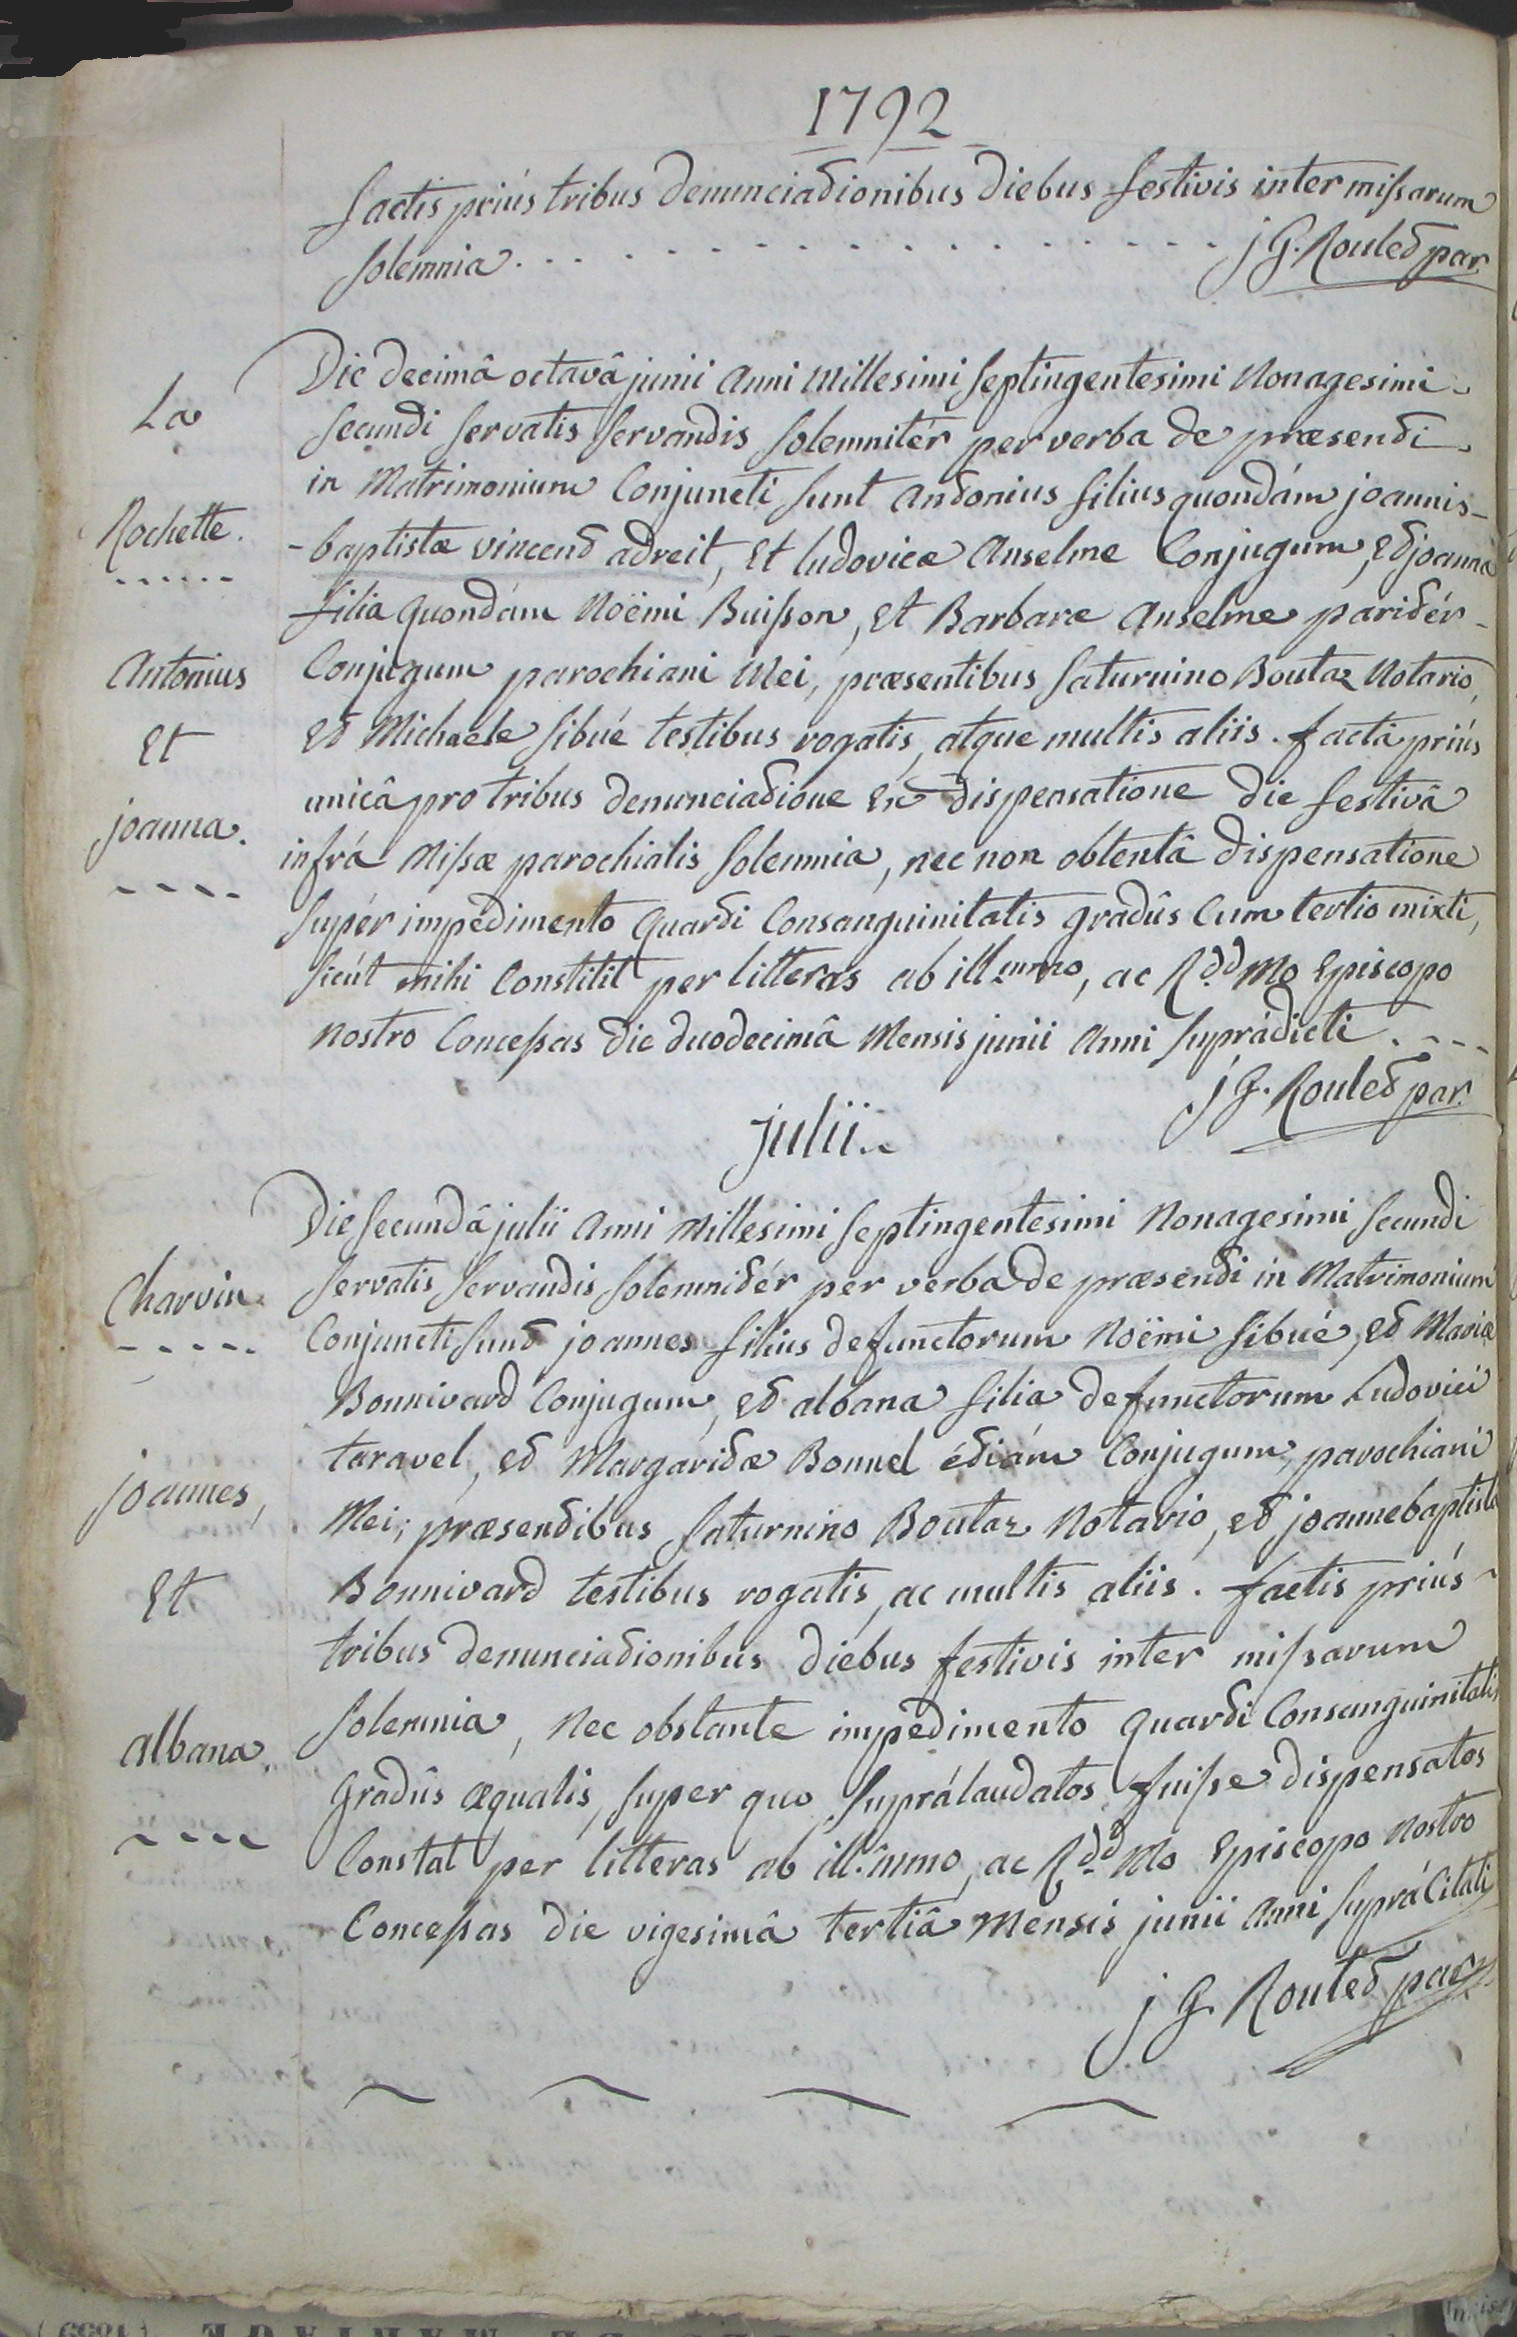 1792
factis priús tribus denunciationibus diebus festivis inter missarum
solemnia. . . . . . . . . . . . . . . . j G. Roulet par.
La
Rochette.
Antonius
Et
joanna.
Die decimâ octavâ junii Anni Millesimi septingentesimi Nonagesimi
secundi servatis servandis solemnitér per verba de præsenti
in Matrimonium Conjuncti sunt Antonius filius quondám joannis-
-baptistæ vincent adreit, Et ludovicæ Anselme Conjugum, et joanna
filia quondám Noëmi Buisson, Et Barbaræ Anselme paritér
Conjugum parochiani Mei, præsentibus saturnino Boutaz Notario,
et Michaele sibué testibus rogatis, atque multis aliis. factâ priús
unicâ pro tribus denunciatione Ex dispensatione die festivâ
infrá Missæ parochialis solemnia, nec non obtentâ dispensatione
supér impedimento quarti Consanguinitatis gradûs Cum tertio mixti,
sicút mihi Constitit per litteras ab ill.mmo, ac R.dd Mo Episcopo
Nostro Concessas die duodecimâ Mensis junii Anni suprádicti. - - -
j G. Roulet par.
julii.
Charvin
joannes,
Et
albana.
Die secundâ julii Anni Millesimi septingentesimi Nonagesimi secundi
servatis servandis solemnitér per verba de præsenti in Matrimonium
Conjuncti sunt joannes filius defunctorum Noëmi sibué, et Mariæ
Bonnivard Conjugum, et albana filia defunctorum Ludovici
taravel, et Margaritæ Bonnel étiám Conjugum, parochiani
Mei; præsentibus saturnino Boutaz Notario, et joannebaptista
Bonnivard testibus rogatis, ac multis aliis. factis priús
tribus denunciationibus diebus festivis inter missarum
solemnia, Nec obstante impedimento quarti Consanguinitatis
gradûs æqualis, super quo suprálaudatos fuisse dispensatos
Constat per litteras ab ill.mmo, ac R.dd Mo Episcopo Nostro
Concessas die vigesimâ tertiâ Mensis junii Anni suprá Citati
j G. Roulet par.